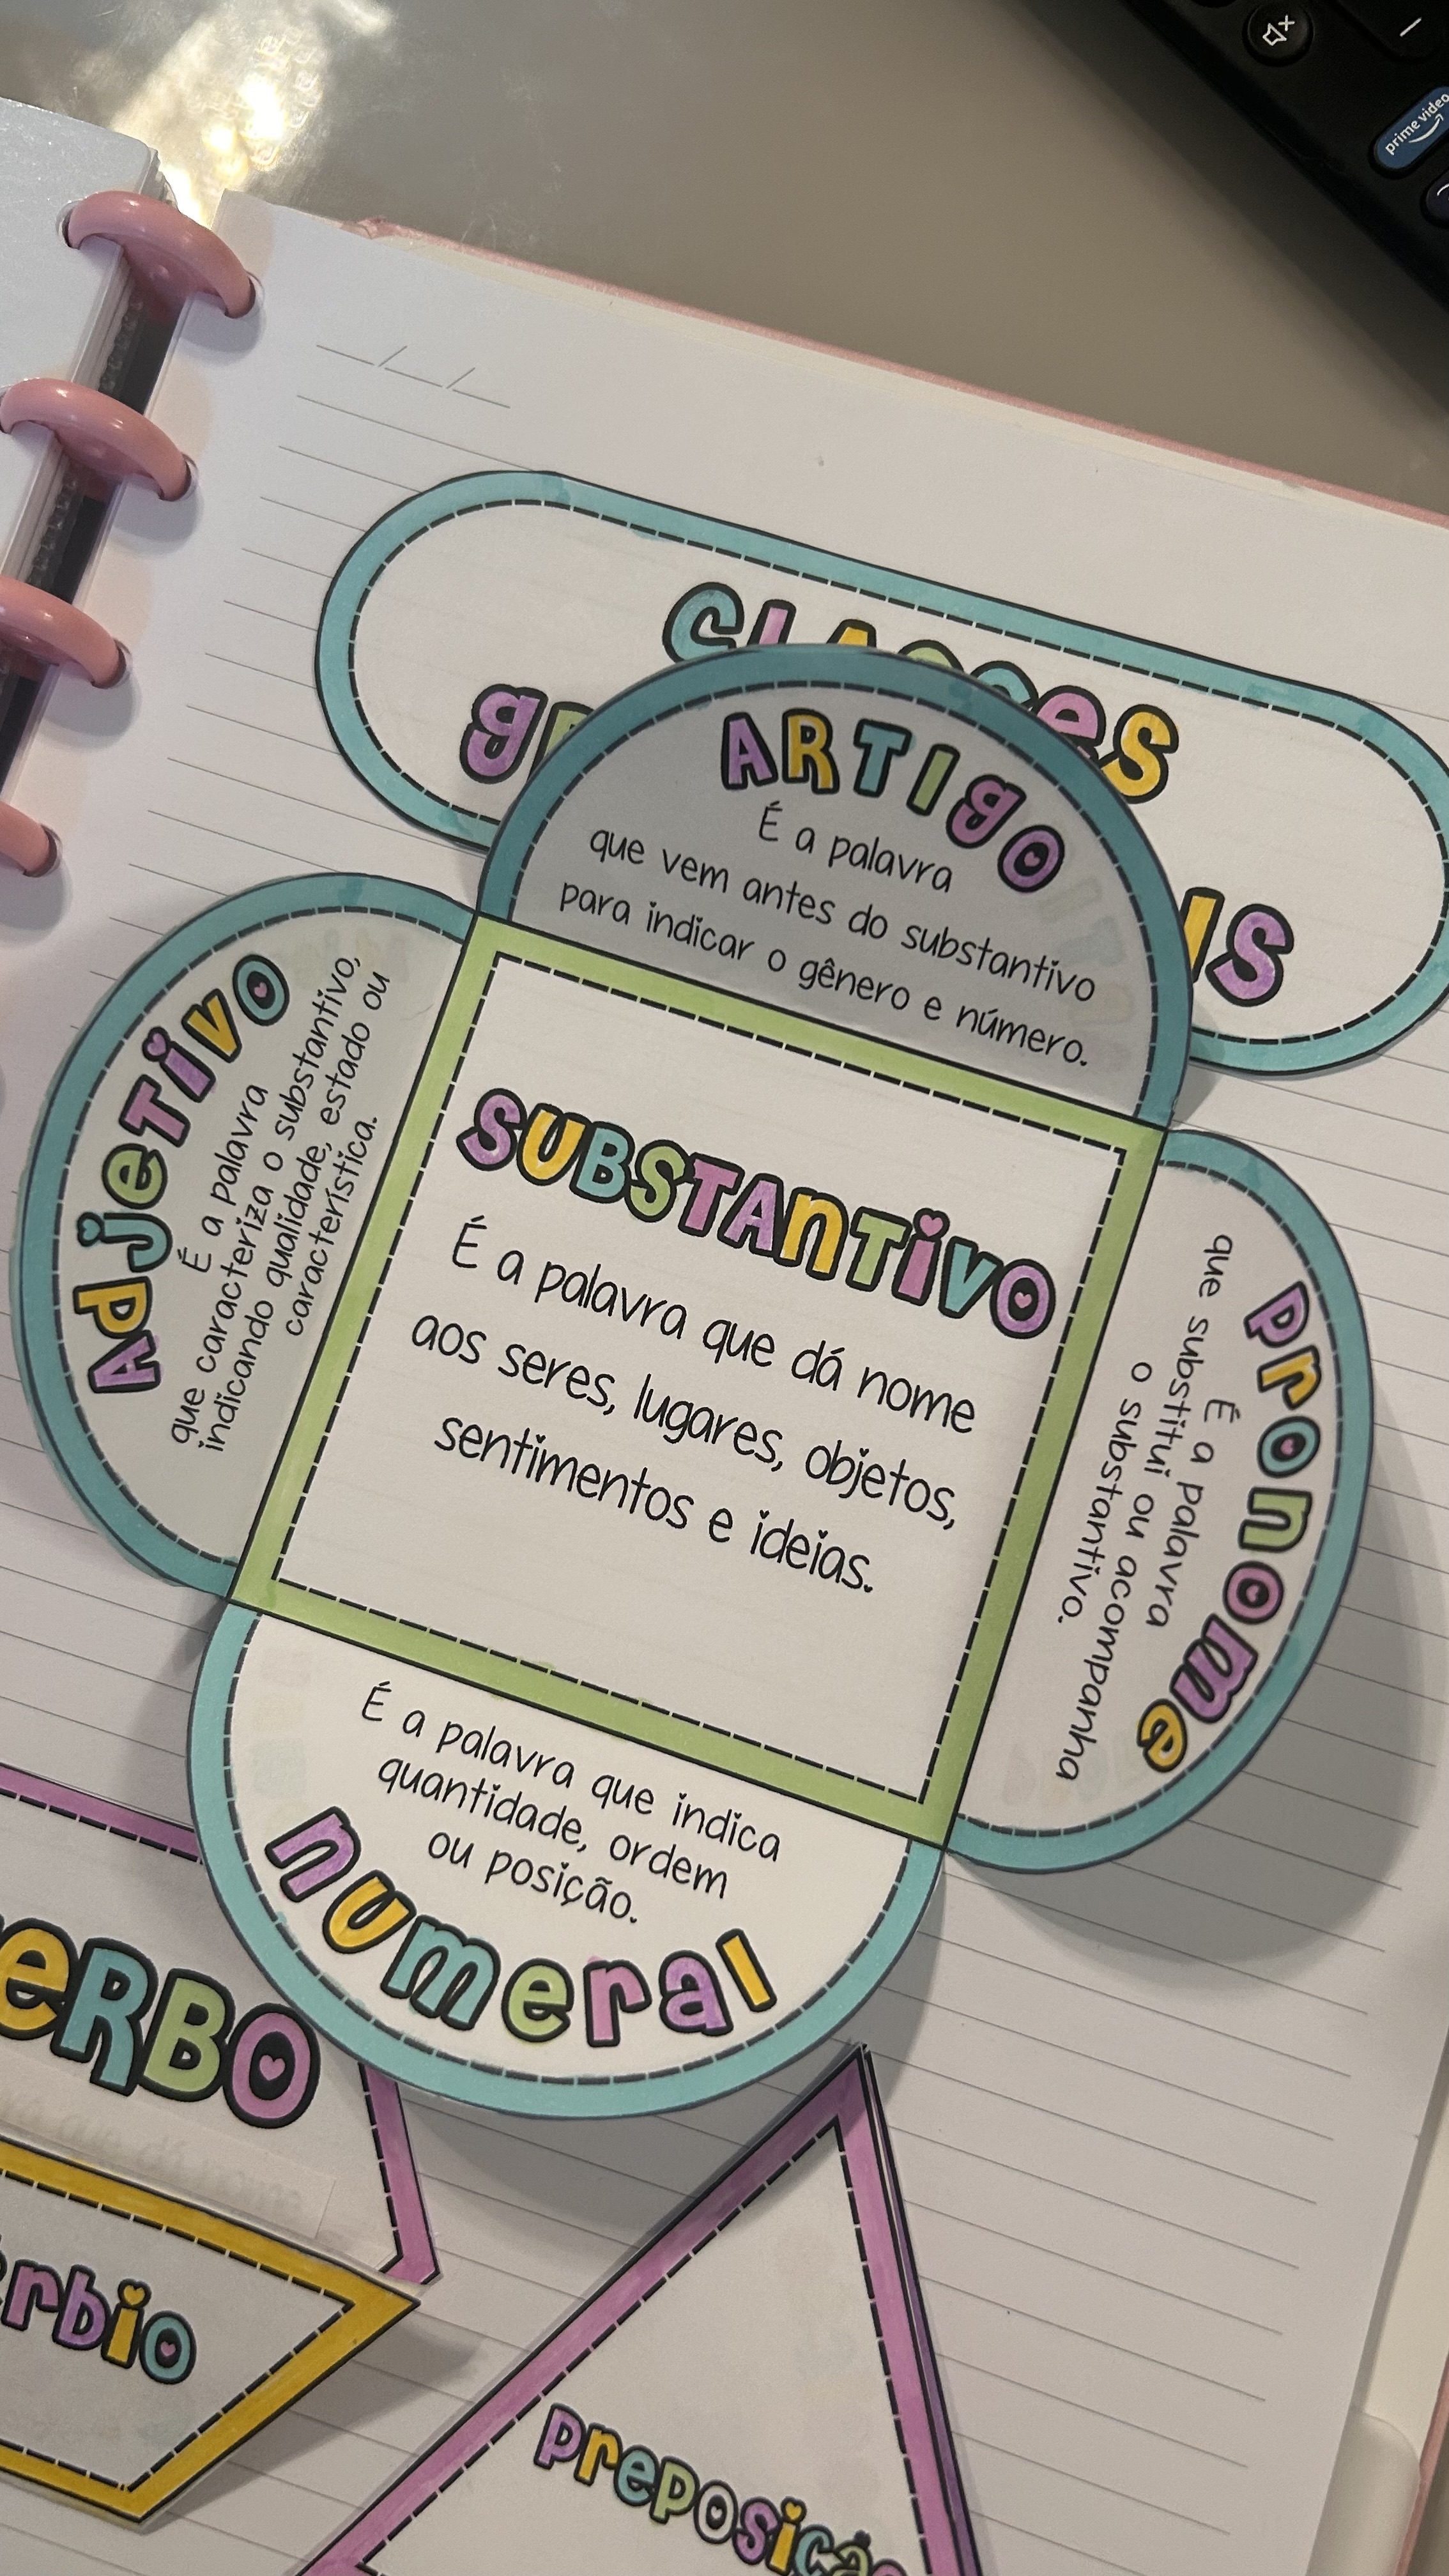 prime video
ARTIGO
É a palavra
que vem antes do substantivo
para indicar o gênero e número.
Adjetivo
É a palavra
que caracteriza o substantivo,
indicando qualidade, estado ou
característica.
SUBSTANTIVO
É a palavra que dá nome
aos seres, lugares, objetos,
sentimentos e ideias.
pronome
É a palavra
que substitui ou acompanha
o substantivo.
É a palavra que indica
quantidade, ordem
ou posição.
numeral
eRBO
rbio
preposição